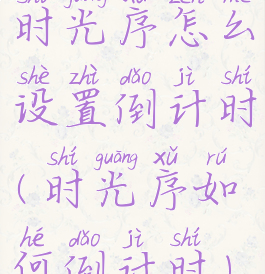 shí guāng xù zěn me
时光序怎么
shè zhì dǎo jì shí
设置倒计时
shí guāng xǔ rú
(时光序如
hé dǎo jì shí
何倒计时)